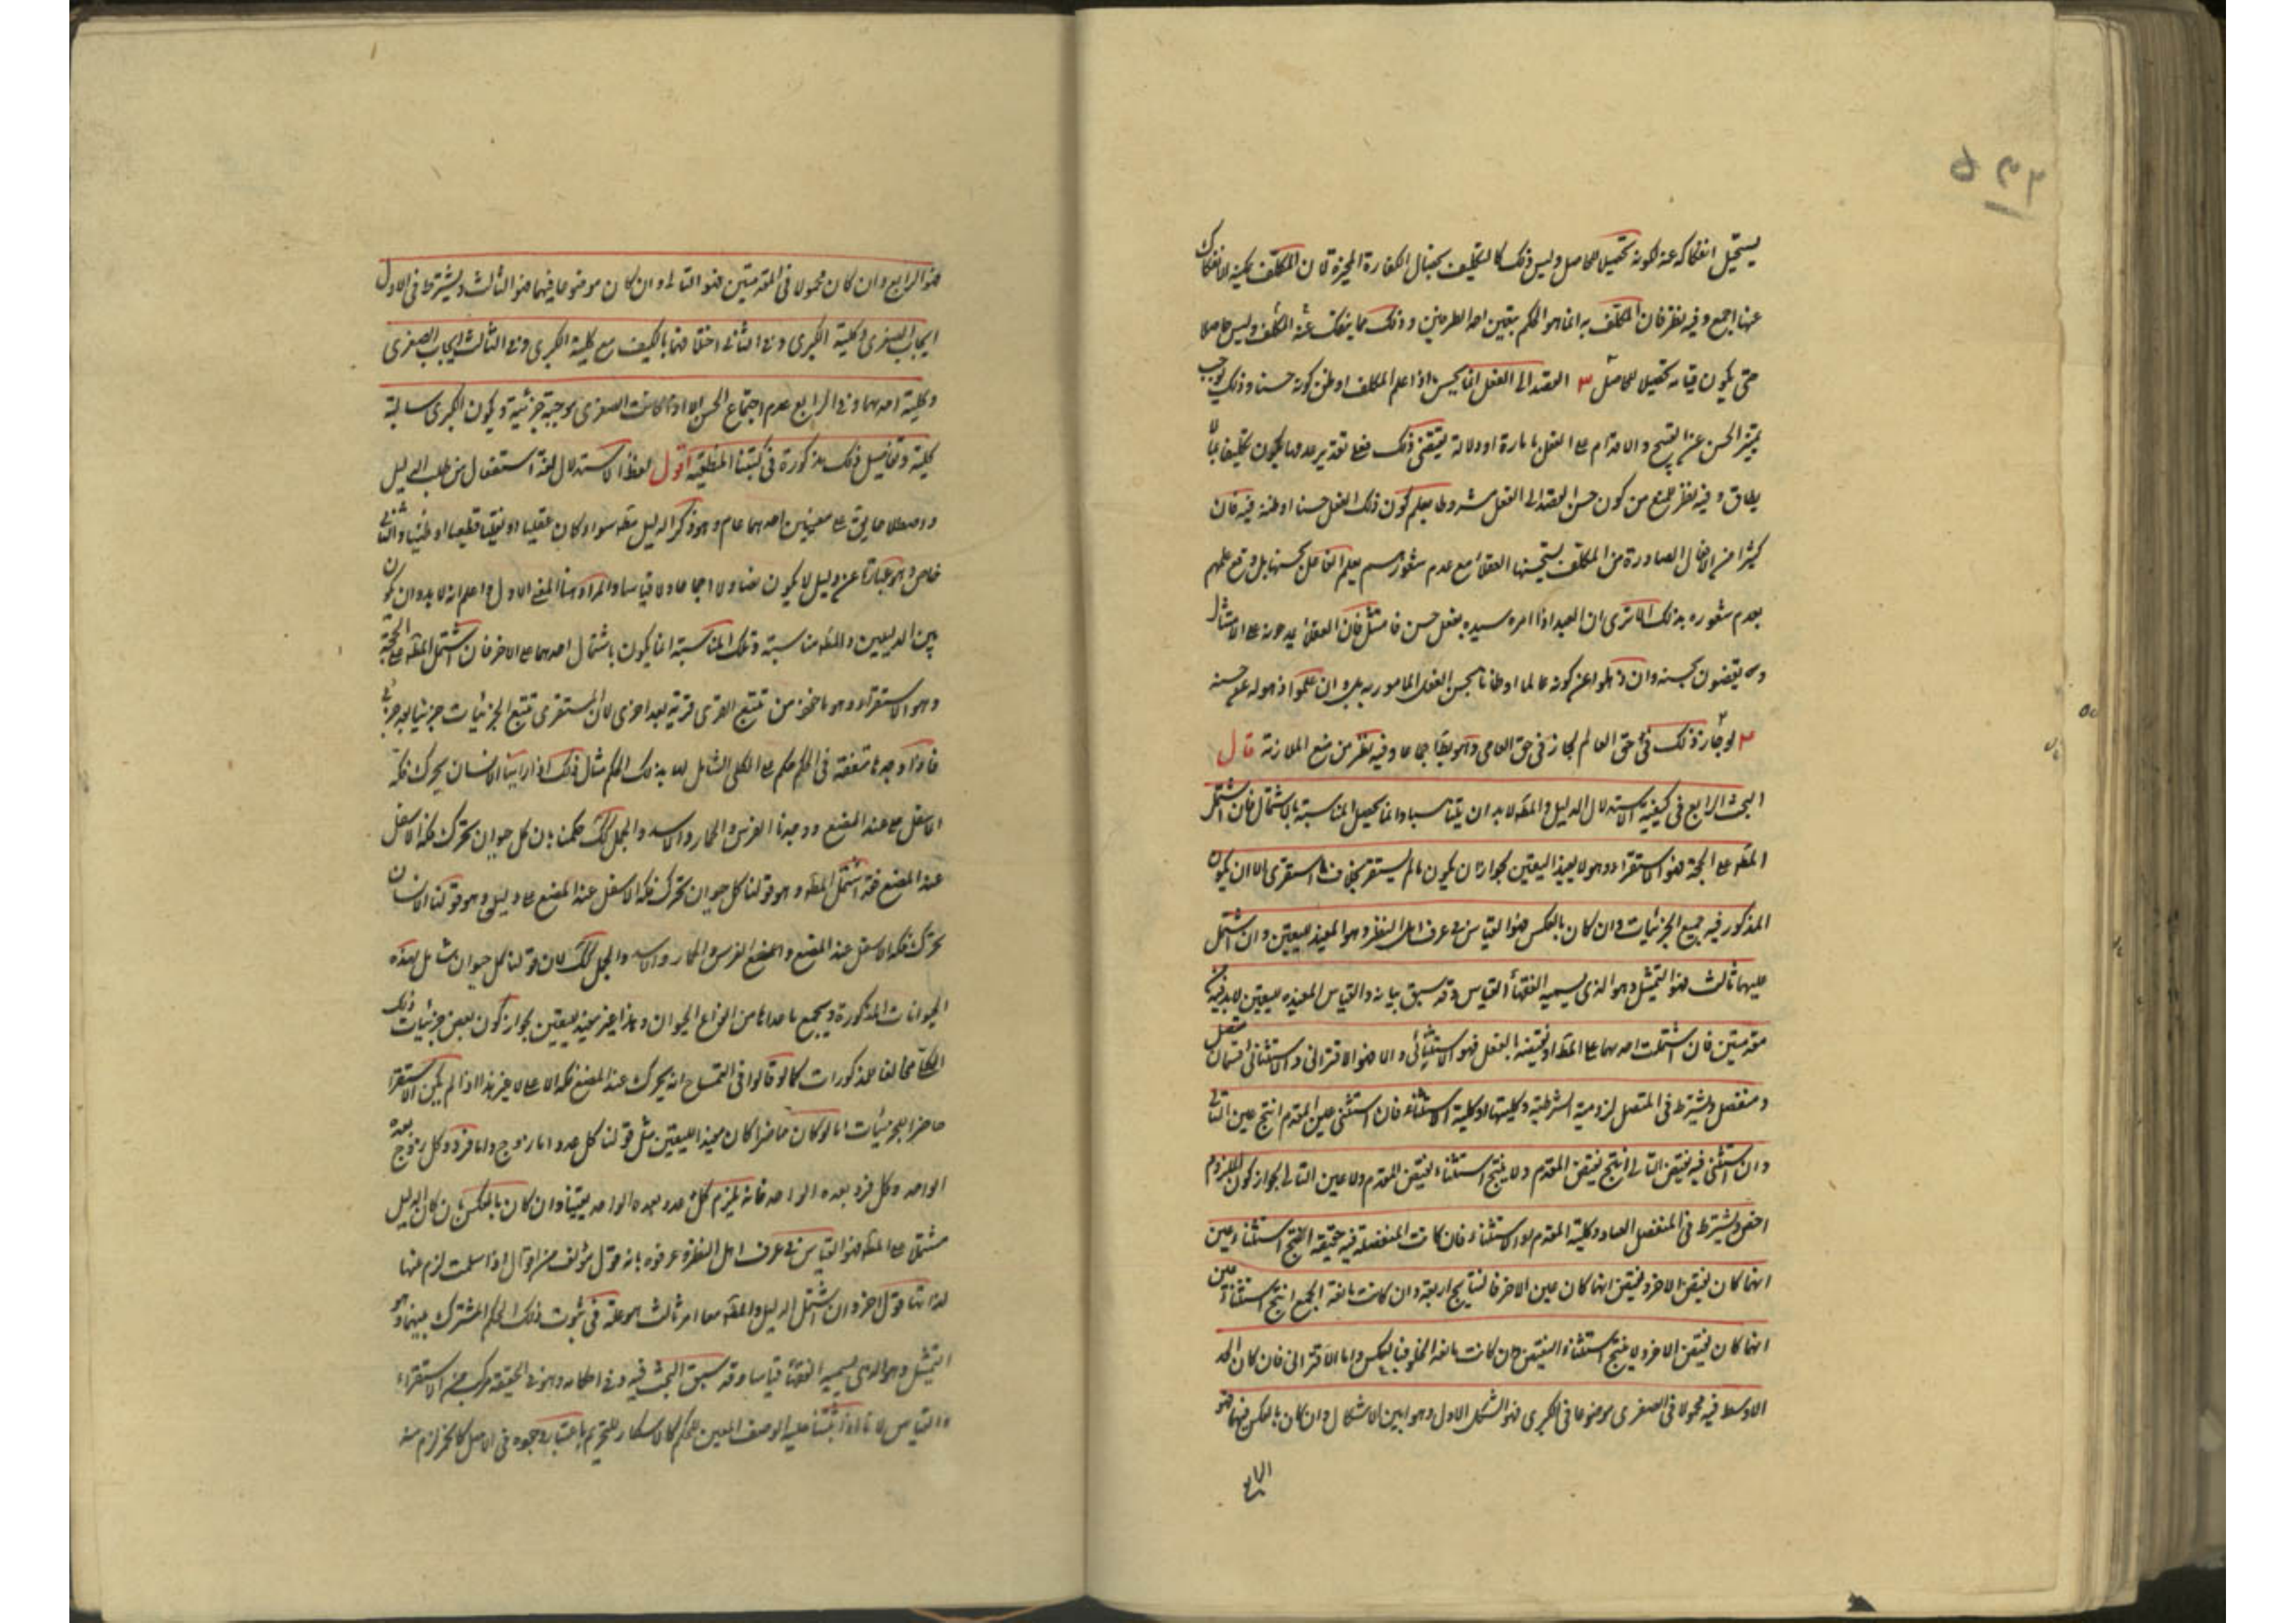 يستحيل انفكاكه عنه لكونه تحصيلا للحاصل وليس ذلك كالتكليف بخصال الكفارة المخيرة لان المكلف يمكنه الانفكاك
عنها اجمع وفيه نظر فان المكلف به انما هو الحكم بتعين احد الطرفين وذلك مما ينفك عنه المكلف وليس حاصلا
حتى يكون تحصيلا للحاصل ٣ القصد الى الفعل انما يحسن اذا علم المكلف او ظن كونه حسنا وذلك يوجب
تميز الحسن عن القبيح والاقدام على الفعل بامارة او دلالة يقتضي ذلك فعلى تقدير عدمها يكون تكليفا بما لا
يطاق وفيه نظر لمنع من كون حسن القصد الى الفعل مشروطا بعلم كون ذلك الفعل حسنا او ظنه فيه فان
كثيرا من الافعال الصادرة من المكلف يستحسنها العقلاء مع عدم شعورهم بعلم الفاعل بحسنها بل ومع علمهم
بعدم شعوره بذلك الا ترى ان العبد اذا امره سيده بفعل حسن فامتثل فان العقلاء يمدحونه على الامتثال
ويقضون بحسنه وان ذهلوا عن كونه عالما او ظانا بحسن الفعل المأمور به بل وان علموا ذهوله عن حسنه
٣ لو جاز ذلك في حق العالم لجاز في حق العامي وهو بط اجماعا وفيه نظر من منع الملازمة قال
البحث الرابع في كيفية الاستدلال الدليل والمط لابد ان يتناسبا وانما يحصل المناسبة باشتمال فان اشتمل
المط على الحجة فهو الاستقراء وهو لا يفيد اليقين لجواز ان يكون ما لم يستقر بخلاف ما استقرئ الا ان يكون
المذكور فيه جميع الجزئيات وان كان بالعكس فهو القياس في عرف اهل النظر وهو المفيد لليقين وان اشتمل
عليهما ثالث فهو التمثيل وهو الذي يسميه الفقهاء القياس وقد سبق بيانه والقياس المفيد لليقين لابد فيه
مقدمتين فان اشتملت احديهما على المط او نقيضه بالفعل فهو الاستثنائي والا فهو الاقتراني والاستثنائي قسمان متصل
ومنفصل ويشترط في المتصل لزومية الشرطية وكليتها او كلية الاستثناء فان استثنى عين المقدم انتج عين التالي
وان استثنى فيه نقيض التالي انتج نقيض المقدم ولا ينتج استثناء نقيض المقدم ولا عين التالي لجواز كون الملزوم
اخص ويشترط في المنفصل العناد وكلية المقدم او الاستثناء فان كانت المنفصلة فيه حقيقة انتج استثناء عين
ايهما كان نقيض الاخر ونقيض ايهما كان عين الاخر فالنتايج اربعة وان كانت مانعة الجمع انتج استثناء عين
ايهما كان نقيض الاخر ولا ينتج استثناء النقيضين وان كانت مانعة الخلو فبالعكس واما الاقتراني فان كان الحد
الاوسط فيه محمولا في الصغرى موضوعا في الكبرى فهو الشكل الاول وهو ابين الاشكال وان كان بالعكس فيهما فهو
الرابع
فهو الرابع وان كان محمولا في المقدمتين فهو الثاني وان كان موضوعا فيهما فهو الثالث ويشترط في الاول
ايجاب الصغرى وكلية الكبرى وفي الثاني اختلافهما بالكيف مع كلية الكبرى وفي الثالث ايجاب الصغرى
وكلية احديهما وفي الرابع عدم اجتماع الخستين الا اذا كانت الصغرى موجبة جزئية ويكون الكبرى سالبة
كلية وتفاصيل ذلك مذكورة في كتبنا المنطقية اقول لفظ الاستدلال لغة استفعال من طلب الدليل
واصطلاحا يق على معنيين احدهما عام وهو ذكر الدليل مط سواء كان عقليا او نقليا قطعيا او ظنيا والثاني
خاص وهو عبارة عن دليل لا يكون نصا ولا اجماعا ولا قياسا والمراد هنا المعنى الاول واعلم انه لابد وان يكون
بين الدليلين والمط مناسبة وتلك المناسبة انما يكون باشتمال احدهما على الاخر فان اشتمل المط على الحجة
وهو الاستقراء وهو ماخوذ من تتبع القرى قرية بعد اخرى لان المستقري تتبع الجزئيات جزئيا بعد جزئي
فاذا وجدها متفقة في الحكم حكم على الكلي الشامل لها بذلك الحكم مثال ذلك اذا راينا الانسان يحرك فكه
الاسفل عند المضغ ووجدنا الفرس والحمار والاسد والجمل كك حكمنا بان كل حيوان يحرك فكه الاسفل
عند المضغ فقد اشتمل المط وهو قولنا كل حيوان يحرك فكه الاسفل عند المضغ على دليل وهو قولنا الانسان
يحرك فكه الاسفل عند المضغ والفرس والحمار والاسد والجمل كك لان قولنا كل حيوان شامل لهذه
الحيوانات المذكورة ويجمع ما عداها من انواع الحيوان وهذا غير مفيد لليقين لجواز كون بعض جزئيات ذلك
الكلي مخالفا للمذكورات كما لو قالوا في التمساح انه يحرك عند المضغ فكه الاعلى لا غير هذا اذا لم يكن الاستقراء
حاصرا للجزئيات اما لو كان حاصرا كان مفيدا لليقين مثل قولنا كل عدد اما زوج واما فرد وكل زوج يعده
الواحد وكل فرد يعده الواحد فانه يلزم كل عدد يعده الواحد يقينا وان كان بالعكس بان كان الدليل
مشتمل على المط فهو القياس في عرف اهل النظر وعرفوه بانه قول مؤلف من اقوال اذا سلمت لزم عنها
لذاتها قول اخر وان اشتمل الدليل والمط معا امر ثالث هو علة في ثبوت ذلك الحكم المشترك بينهما وهو
التمثيل وهو الذي يسميه الفقهاء قياسا وقد سبق البحث فيه وفي احكامه وهو في الحقيقة مركب من الاستقراء
والقياس لانا اذا اثبتنا علية الوصف المعين للحكم كالاسكار للتحريم باعتبار وجوده في الاصل كالخمر لزم منه